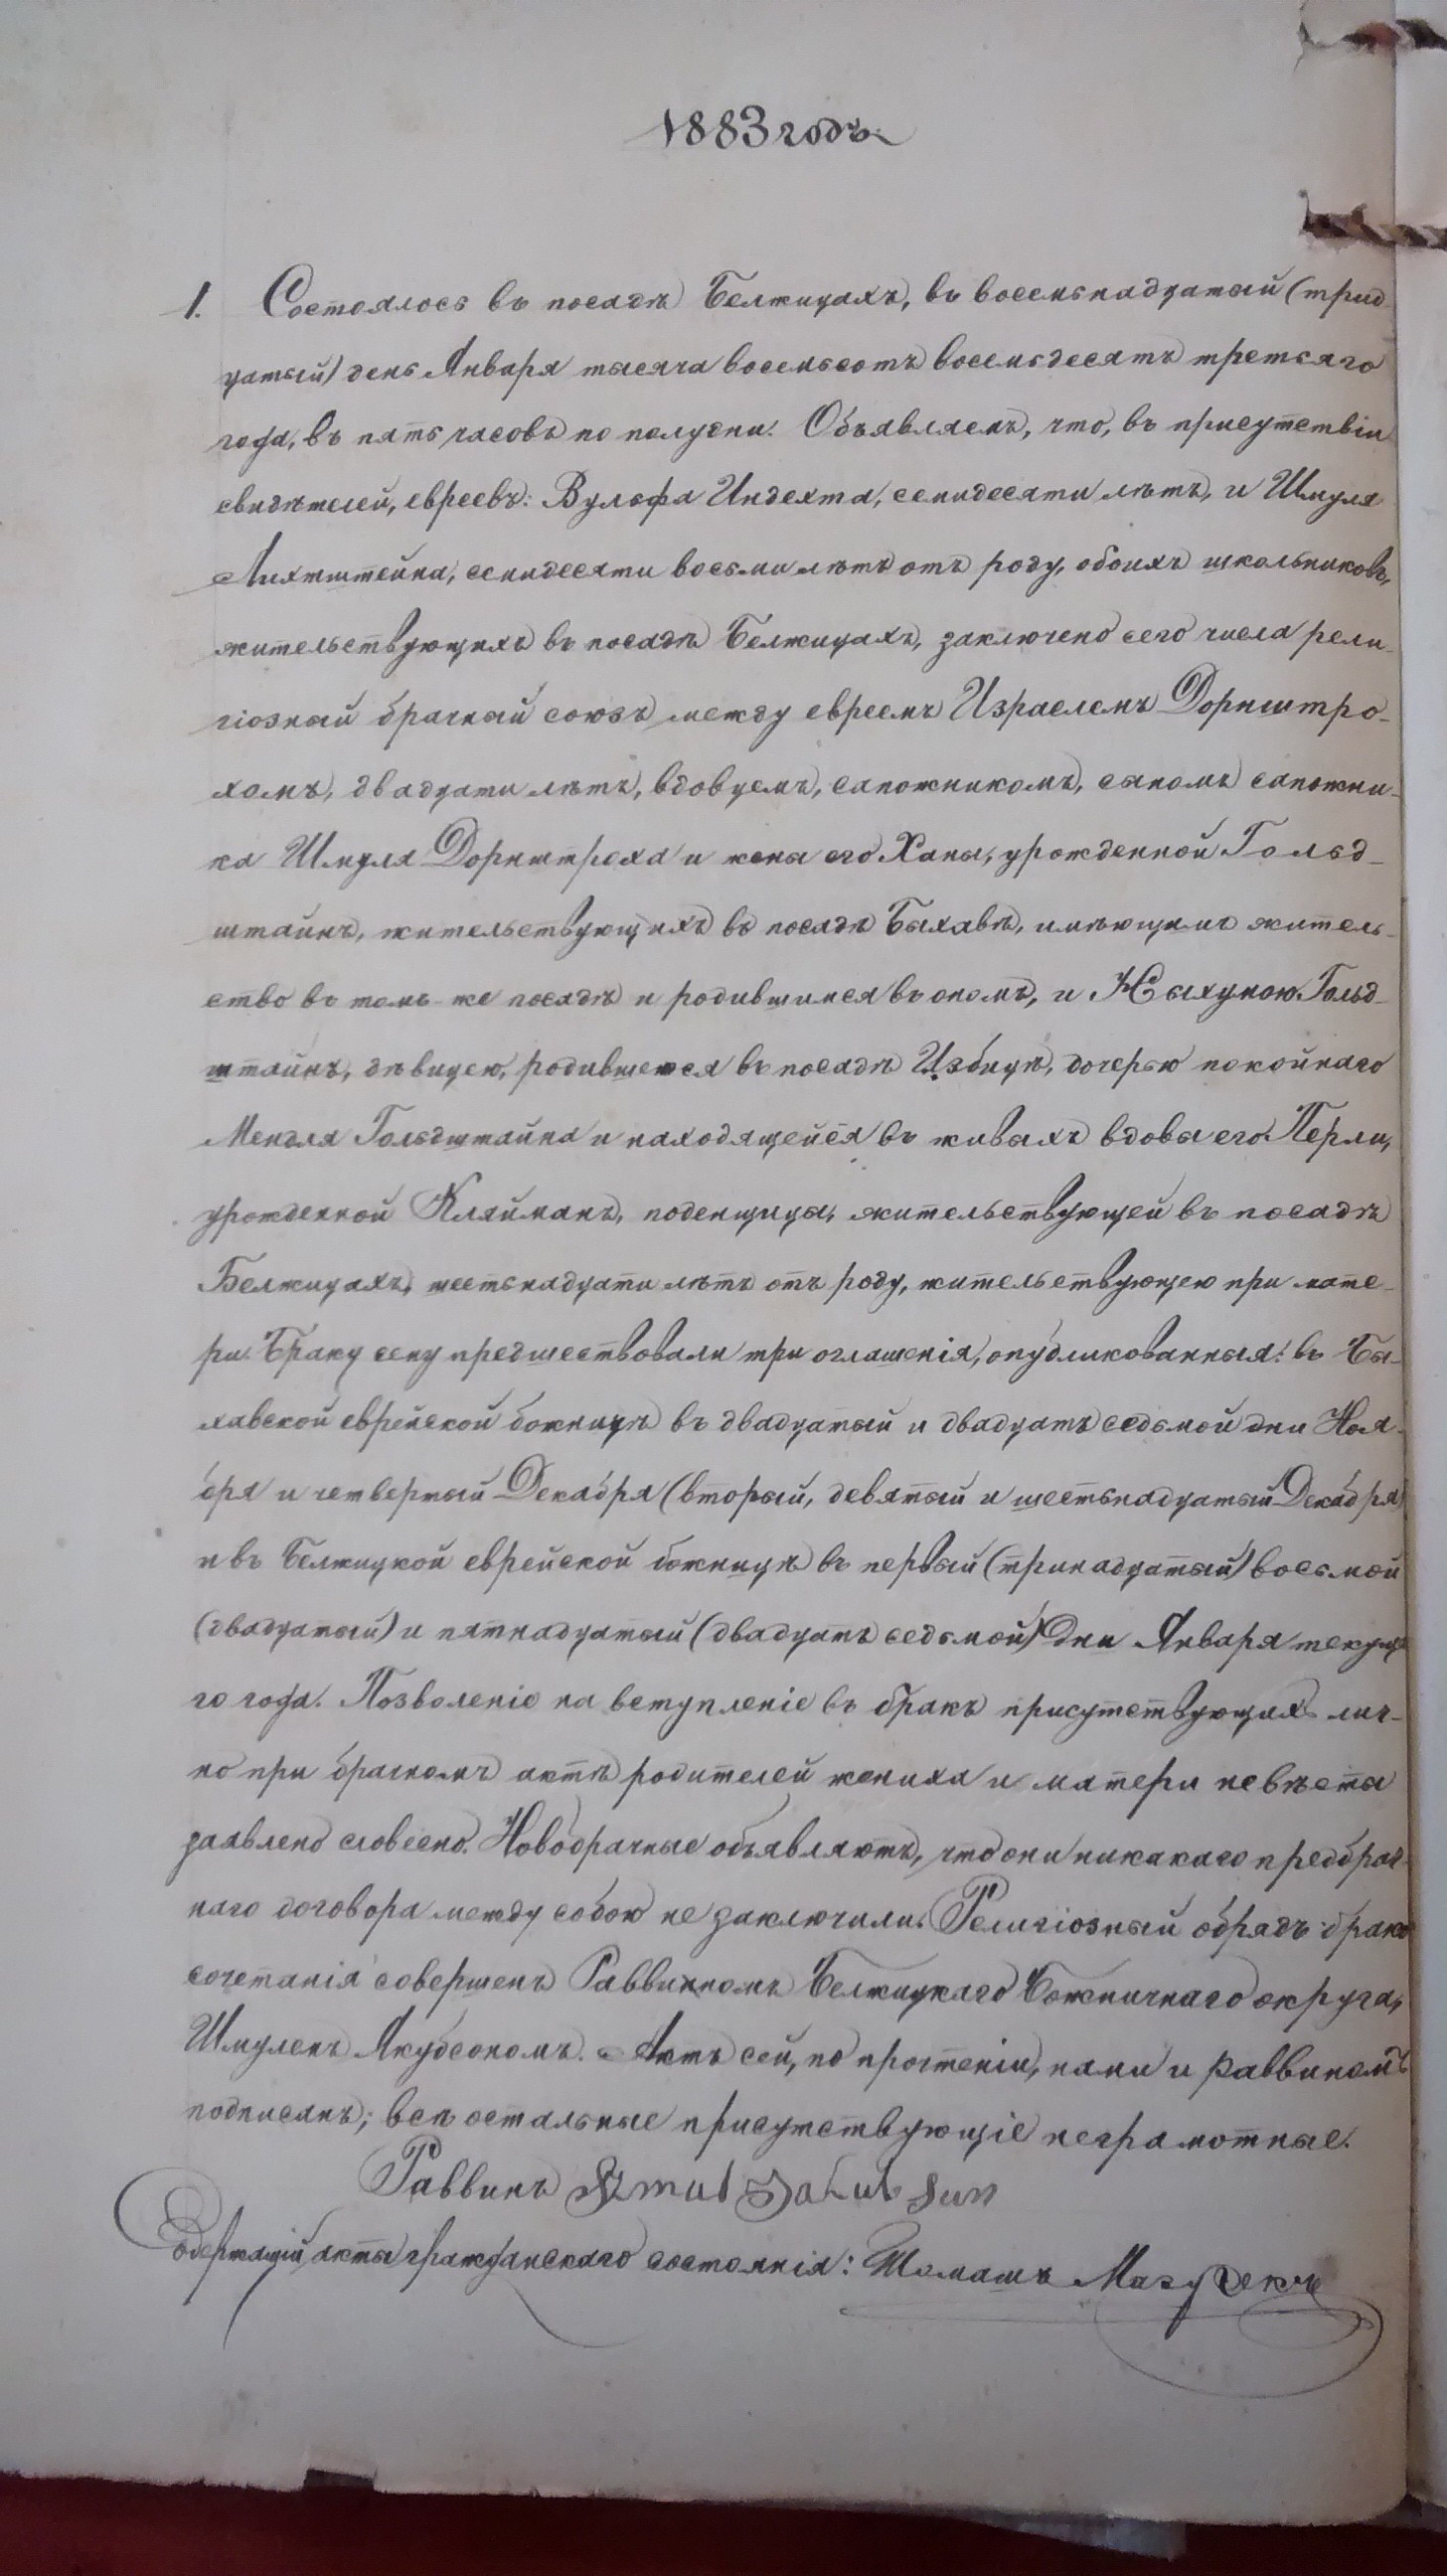 1883 годъ.
1. Состоялось въ посадѣ Белжицахъ, въ восемьнадцатый (трид-
цатый) день Января тысяча восемьсотъ восемьдесятъ третьяго
года, въ пять часовъ по полудни. Объявляемъ, что, въ присутствіи
свидѣтелей, евреевъ: Вульфа Индехта, семидесяти лѣтъ, и Шмуля
Лихтштейна, семидесяти восьми лѣтъ отъ роду, обоихъ школьниковъ,
жительствующихъ въ посадѣ Белжицахъ, заключено сего числа рели-
гіозный брачный союзъ между евреемъ Израелемъ Дорнштро-
хомъ, двадцати лѣтъ, вдовцемъ, сапожникомъ, сыномъ сапожни-
ка Шмуля Дорнштроха и жены его Ханы, урожденной Гольд-
штайнъ, жительствующихъ въ посадѣ Быхавѣ, имѣющимъ житель-
ство въ томъ-же посадѣ и родившимся въ ономъ, и Гольд-
штайнъ, дѣвицею, родившеюся въ посадѣ Избицѣ, дочерью покойнаго
Мендля Гольдштайна и находящейся въ живыхъ вдовы его Перли,
урожденной Кляйманъ, поденщицы, жительствующей въ посадѣ
Белжицахъ, шестьнадцати лѣтъ отъ роду, жительствующею при мате-
ри. Браку сему предшествовали три оглашенія, опубликованныя: въ Бы-
хавской еврейской божницѣ въ двадцатый и двадцать седьмой дни Ноя-
бря и четвертый Декабря (вторый, девятый и шестьнадцатый Декабря)
и въ Белжицкой еврейской божницѣ въ первый (тринадцатый) восьмой
(двадцатый) и пятнадцатый (двадцать седьмой) дни Января текуща
го года. Позволеніе на вступленіе въ бракъ присутствующихъ лич-
но при брачномъ актѣ родителей жениха и матери невѣсты
заявлено словесно. Новобрачные объявляютъ, что они никакаго предбрач-
наго договора между собою не заключили. Религіозный обрядъ брако
сочетанія совершенъ Раввинномъ Белжицкаго Божничнаго округа,
Шмулемъ Якубсономъ. Актъ сей, по прочтеніи, нами и раввиномъ
подписанъ; всѣ остальные присутствующіе неграмотные.
Раввинъ Szmul Jakubsun
Содержащій акты гражданскаго состоянія: Томашъ Мазурекъ